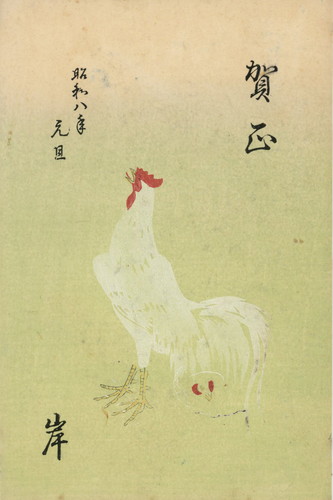 賀正
昭和八年
元旦
岸